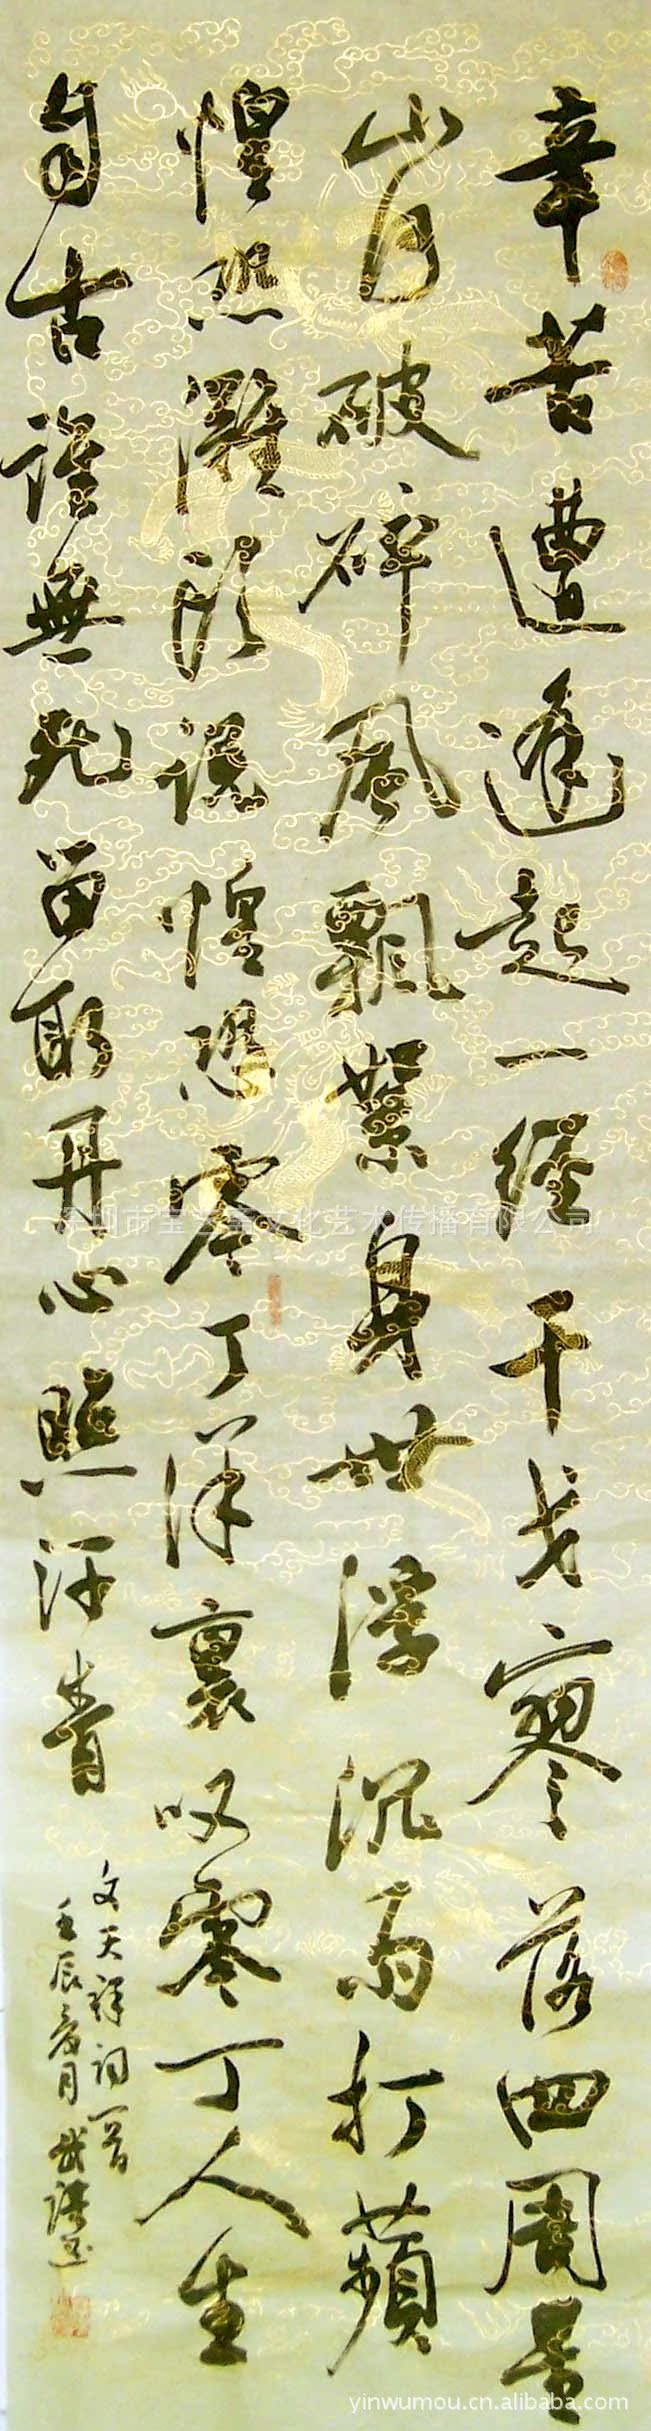 辛苦遭逢起一經干戈寥落四周星
山河破碎風飄絮身世浮沉雨打蘋
惶恐灘頭說惶恐零丁洋裏叹零丁人生
自古誰無死留取丹心照汗青
文天祥詞一首
壬辰 月
深圳市宝艺斋文化艺术传播有限公司
yinwumou.cn.alibaba.com